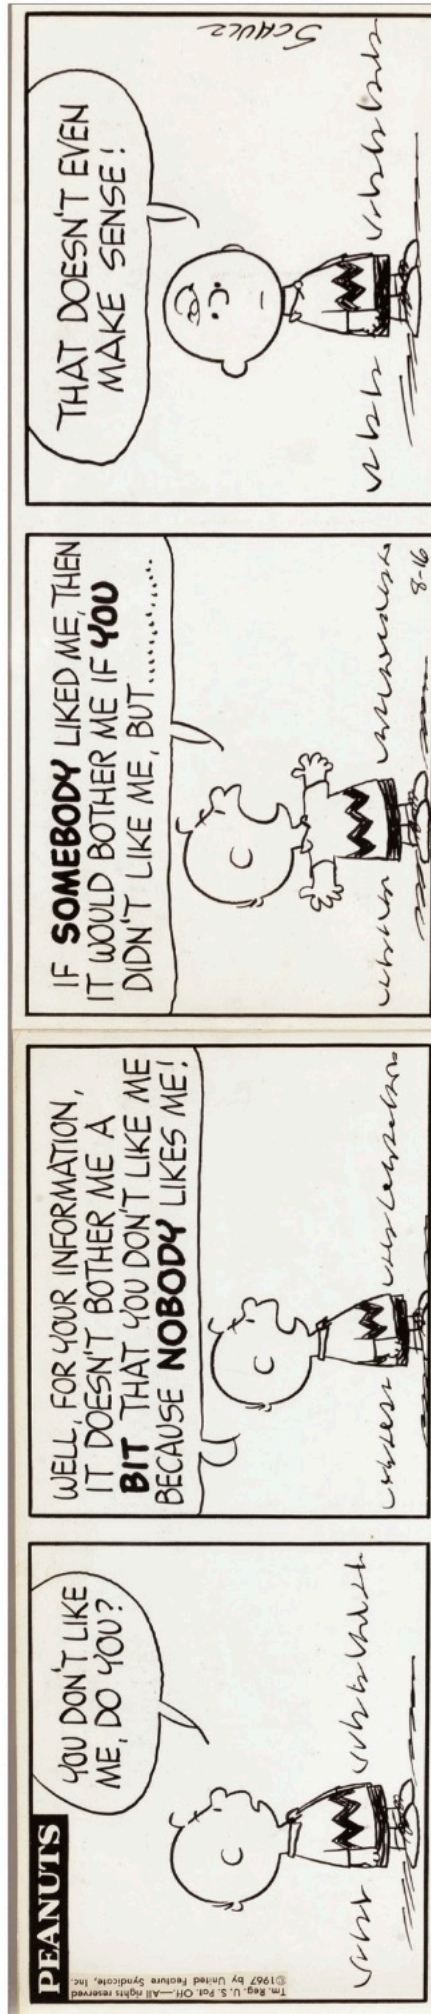 PEANUTS
Tm. Reg. U. S. Pat. Off.—All rights reserved
©1967 by United Feature Syndicate, Inc.
YOU DON'T LIKE
ME, DO YOU?
WELL, FOR YOUR INFORMATION,
IT DOESN'T BOTHER ME A
BIT THAT YOU DON'T LIKE ME
BECAUSE NOBODY LIKES ME!
IF SOMEBODY LIKED ME, THEN
IT WOULD BOTHER ME IF YOU
DIDN'T LIKE ME, BUT............
8-16
THAT DOESN'T EVEN
MAKE SENSE!
SCHULZ